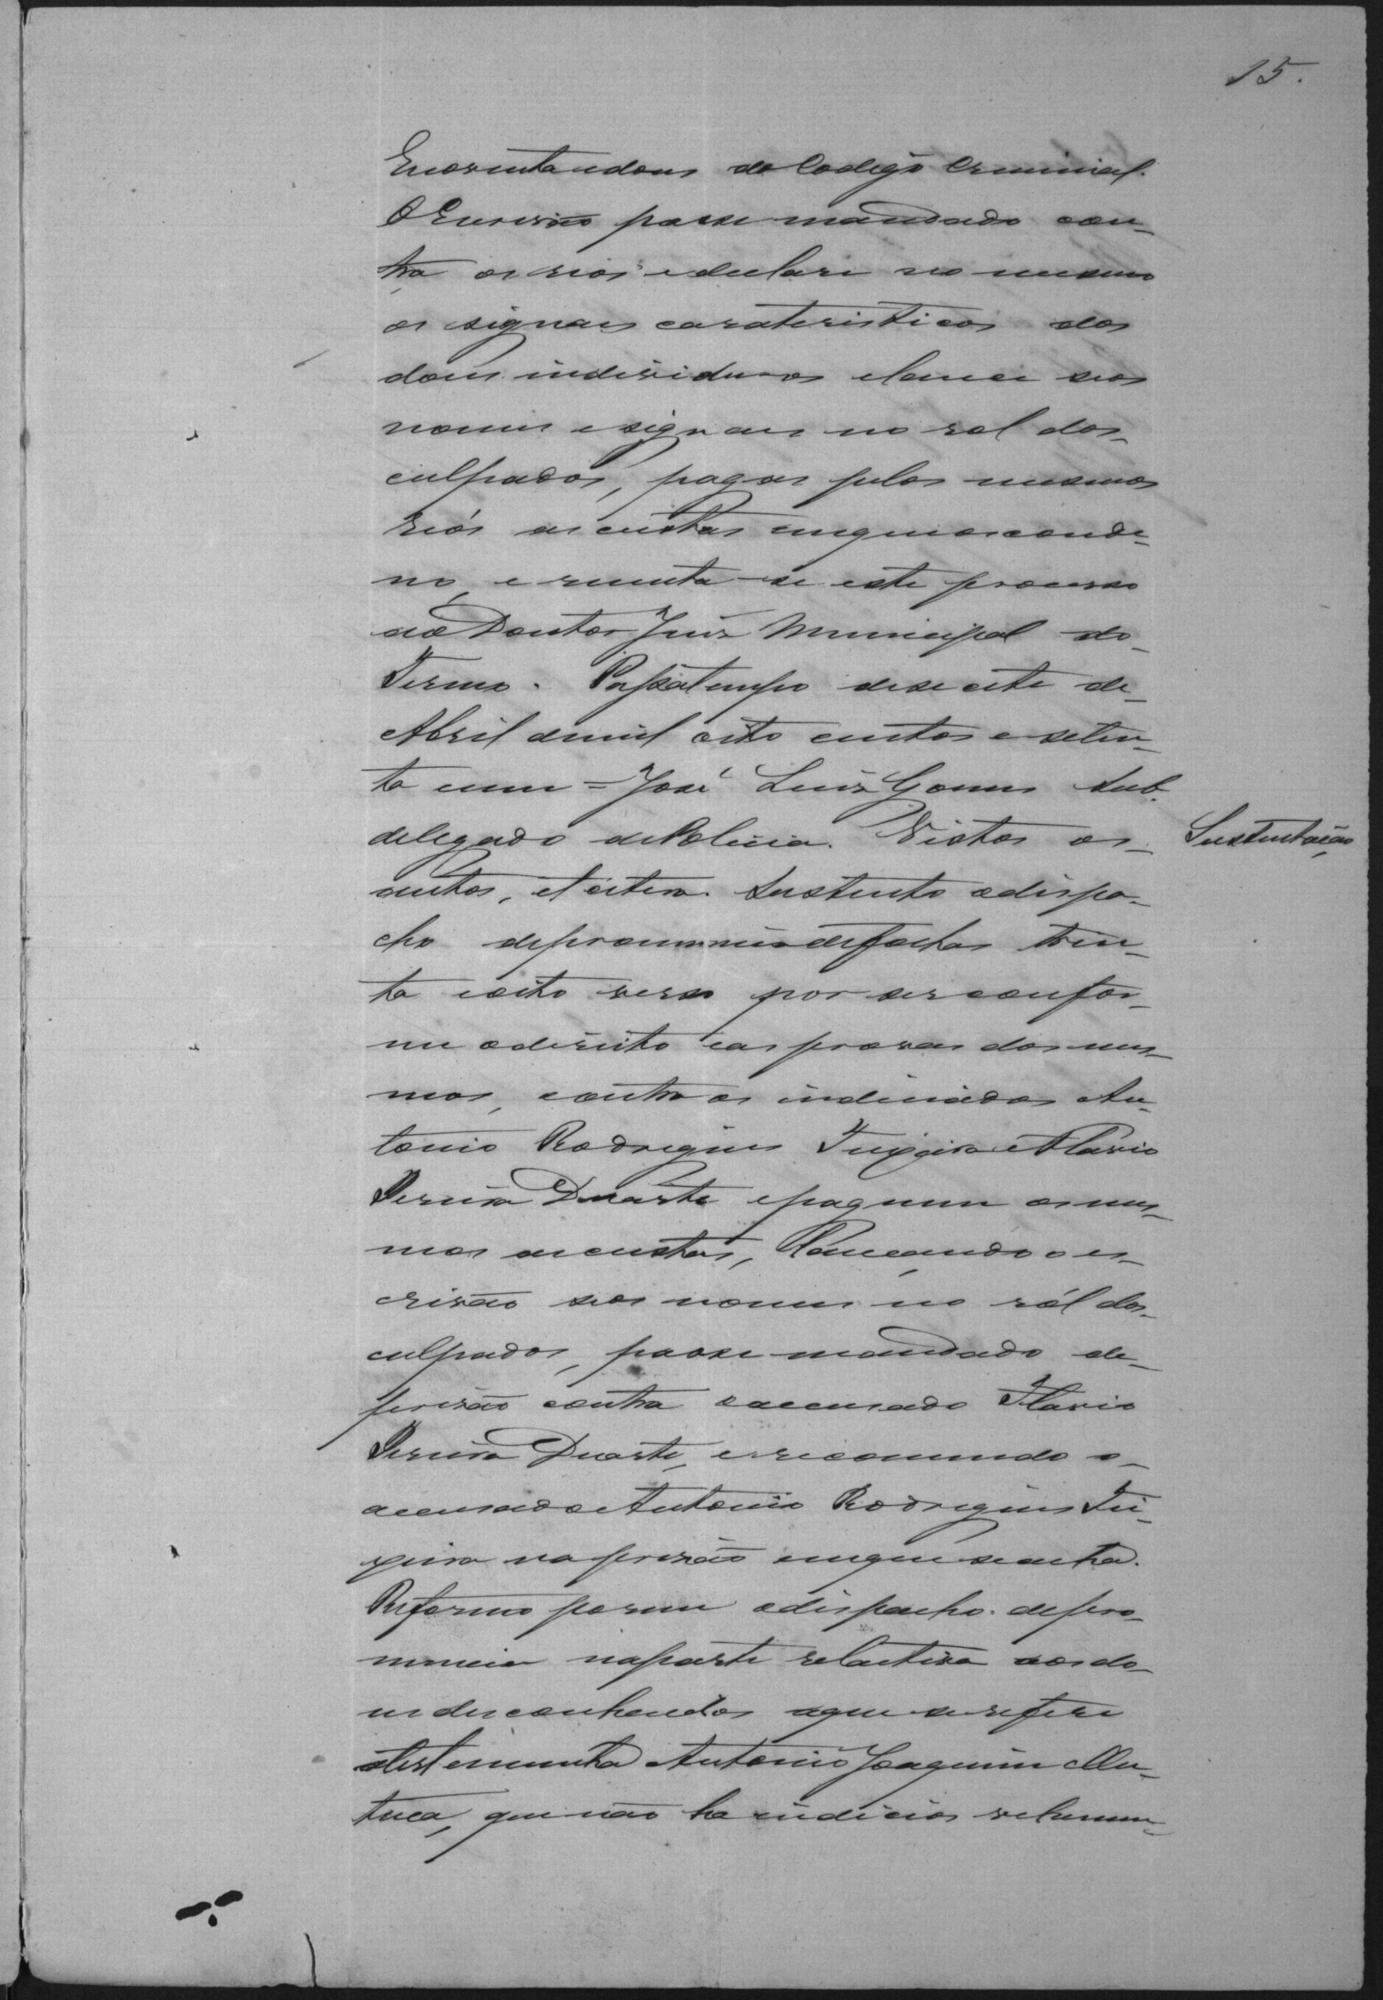 15.
do Codigo Criminal.
O Escrivão passe mandado con-
tra os reos e declare no mesmo
os signaes carateristicos dos
dous individuos e lance seos
nomes e signaes no rol dos
culpados, pagas pelos mesmos
reós as custas em que os conde-
no, e remeta-se este processo
aó Doutor Juiz Municipal do
Termo. Passatempo desesete de
Abril de mil oito centos e seten-
ta e um = José Luiz Gomes Sub-
delegado de Policia. Vistos os
Sustentação
autos, et cétera. Sustento o dispa-
cho de pronuncia de folhas trin-
ta e oito verso por ser confor-
me o direito e as provas dos mes-
mos, contra os indiciados An-
tonio Rodrigues Teixeira e Flavio
Pereira Duarte e paguem os mes-
mos as custas, lançando o es-
crivão seos nomes no ról dos
culpados, passe mandado de
prisão contra o accusado Flavio
Pereira Duarte, e recomendo o
accusado Antonio Rodrigues Tei-
xeira na prisão em que se acha.
Reformo porem o dispacho de pro-
nuncia na parte relactiva aos do-
us desconhecidos a que se refere
a testemunha Antonio Joaquim Mu-
tuca, que não ha indicios vehemen-